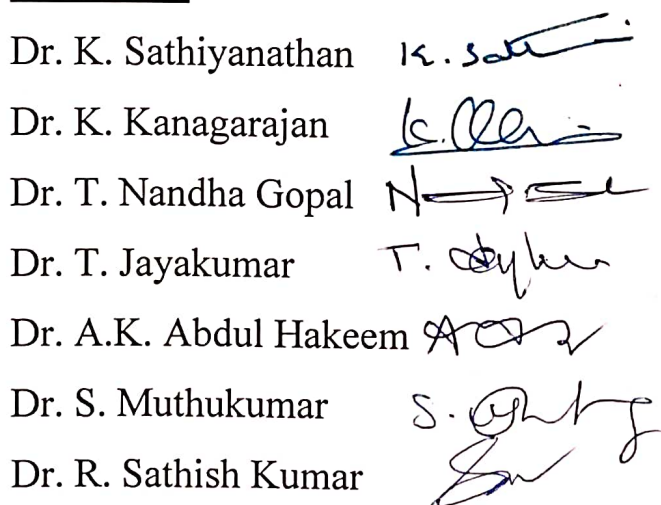 Dr. K. Sathiyanathan K. Sat
Dr. K. Kanagarajan K.
Dr. T. Nandha Gopal
Dr. T. Jayakumar T.
Dr. A.K. Abdul Hakeem
Dr. S. Muthukumar S.
Dr. R. Sathish Kumar